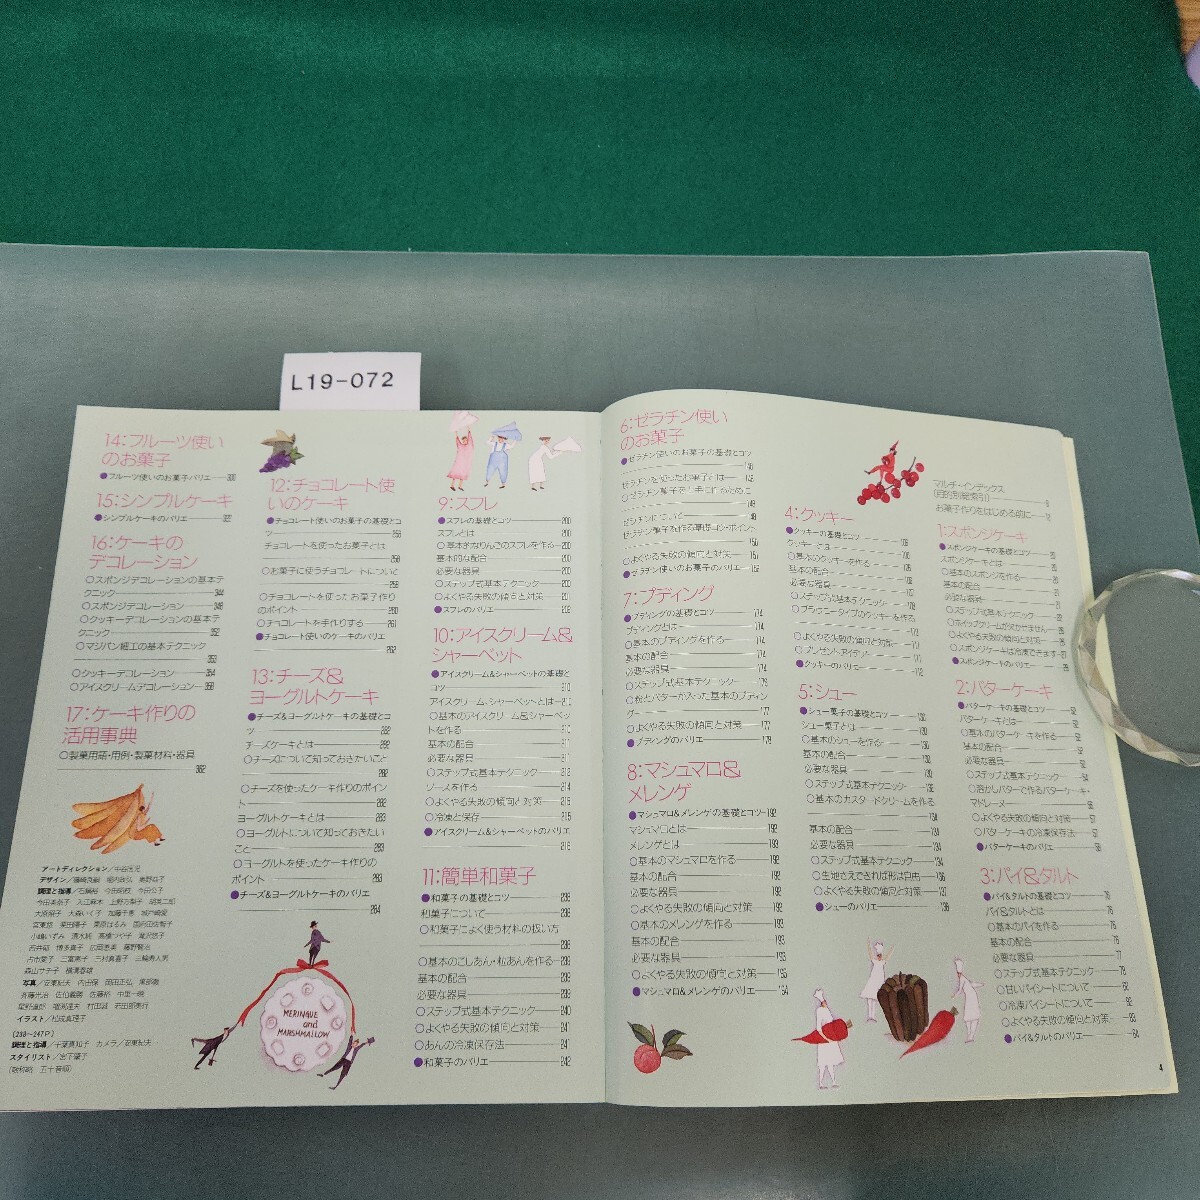 L19-072
マルチ・インデックス
(目的別総索引)
お菓子作りをはじめる前に
1:スポンジケーキ
●スポンジケーキの基礎とコツ
スポンジケーキとは
○基本のスポンジを作る
基本の配合
必要な器具
○ステップ式基本テクニック
○ホイップクリームが欠かせません
○よくやる失敗の傾向と対策
○スポンジケーキは冷凍できます
●スポンジケーキのバリエ
2:バターケーキ
●バターケーキの基礎とコツ
バターケーキとは
○基本のバターケーキを作る
基本の配合
必要な器具
○ステップ式基本テクニック
○溶かしバターで作るバターケーキ・
マドレーヌ
○よくやる失敗の傾向と対策
○バターケーキの冷凍保存法
●バターケーキのバリエ
3:パイ&タルト
●パイ&タルトの基礎とコツ
パイ&タルトとは
○基本のパイを作る
基本の配合
必要な器具
○ステップ式基本テクニック
○甘いパイシートについて
○冷凍パイシートについて
○よくやる失敗の傾向と対策
●パイ&タルトのバリエ
4
4:クッキー
●クッキーの基礎とコツ
クッキーとは
○基本のクッキーを作る
基本の配合
必要な器具
○ステップ式基本テクニック
○ブラウニータイプのクッキーを作る
○よくやる失敗の傾向と対策
○プレゼントアイデア
●クッキーのバリエ
5:シュー
●シュー菓子の基礎とコツ
シュー菓子とは
○基本のシューを作る
基本の配合
必要な器具
○ステップ式基本テクニック
○基本のカスタードクリームを作る
基本の配合
必要な器具
○ステップ式基本テクニック 134
○生地さえできれば形は自由 136
○よくやる失敗の傾向と対策 137
●シューのバリエ 136
6:ゼラチン使い
のお菓子
●ゼラチン使いのお菓子の基礎とコツ
ゼラチンを使ったお菓子とは
○ゼラチン菓子を上手に作るために
ゼラチンについて
ゼラチン菓子を作る重要ポイント
○よくやる失敗の傾向と対策
●ゼラチン使いのお菓子のバリエ
7:プディング
●プディングの基礎とコツ 174
プディングとは 174
○基本のプディングを作る 174
基本の配合 174
必要な器具 174
○ステップ式基本テクニック
○粉とバターが入った基本のプディン
グ 177
○よくやる失敗の傾向と対策 177
●プディングのバリエ 178
8:マシュマロ&
メレンゲ
●マシュマロ&メレンゲの基礎とコツ 192
マシュマロとは 192
メレンゲとは 192
○基本のマシュマロを作る 192
基本の配合 192
必要な器具 192
○よくやる失敗の傾向と対策 192
○基本のメレンゲを作る 193
基本の配合 193
必要な器具 193
○よくやる失敗の傾向と対策
●マシュマロ&メレンゲのバリエ
9:スフレ
●スフレの基礎とコツ 200
スフレとは 200
○基本的なりんごのスフレを作る 200
基本的な配合 200
必要な器具 200
○ステップ式基本テクニック
○よくやる失敗の傾向と対策
●スフレのバリエ
10:アイスクリーム&
シャーベット
●アイスクリーム&シャーベットの基礎と
コツ 210
アイスクリーム・シャーベットとは 210
○基本のアイスクリーム&シャーベッ
トを作る
基本の配合
必要な器具
○ステップ式基本テクニック 212
ソースを作る 214
○よくやる失敗の傾向と対策 215
○冷凍と保存 215
●アイスクリーム&シャーベットのバリエ
216
11:簡単和菓子
●和菓子の基礎とコツ 238
和菓子について 238
○和菓子によく使う材料の扱い方
○基本のこしあん・粒あんを作る
基本の配合
必要な器具
○ステップ式基本テクニック 240
○よくやる失敗の傾向と対策 241
○あんの冷凍保存法 241
●和菓子のバリエ 242
12:チョコレート使
いのケーキ
●チョコレート使いのお菓子の基礎とコ
ツ 258
チョコレートを使ったお菓子とは
258
○お菓子に使うチョコレートについて
○チョコレートを使ったお菓子作り
のポイント 260
○チョコレートを手作りする 261
●チョコレート使いのケーキのバリエ
262
13:チーズ&
ヨーグルトケーキ
●チーズ&ヨーグルトケーキの基礎とコ
ツ 282
チーズケーキとは 282
○チーズについて知っておきたいこと
282
○チーズを使ったケーキ作りのポイン
ト 282
ヨーグルトケーキとは 283
○ヨーグルトについて知っておきたい
こと 283
○ヨーグルトを使ったケーキ作りの
ポイント 283
●チーズ&ヨーグルトケーキのバリエ
284
MERINGUE
and
MARSHMALLOW
14:フルーツ使い
のお菓子
●フルーツ使いのお菓子バリエ 300
15:シンプルケーキ
●シンプルケーキのバリエ 322
16:ケーキの
デコレーション
○スポンジデコレーションの基本テ
クニック 344
○スポンジデコレーション 346
○クッキーデコレーションの基本テ
クニック 352
○マジパン細工の基本テクニック
353
○クッキーデコレーション 354
○アイスクリームデコレーション 358
17:ケーキ作りの
活用事典
○製菓用語・用例・製菓材料・器具
362
アートディレクション
デザイン
調理と指導
写真
イラスト/松成真理子
(238~247P)
調理と指導/千葉真知子 カメラ/安東紀夫
スタイリスト/岩下肇子
(敬称略 五十音順)